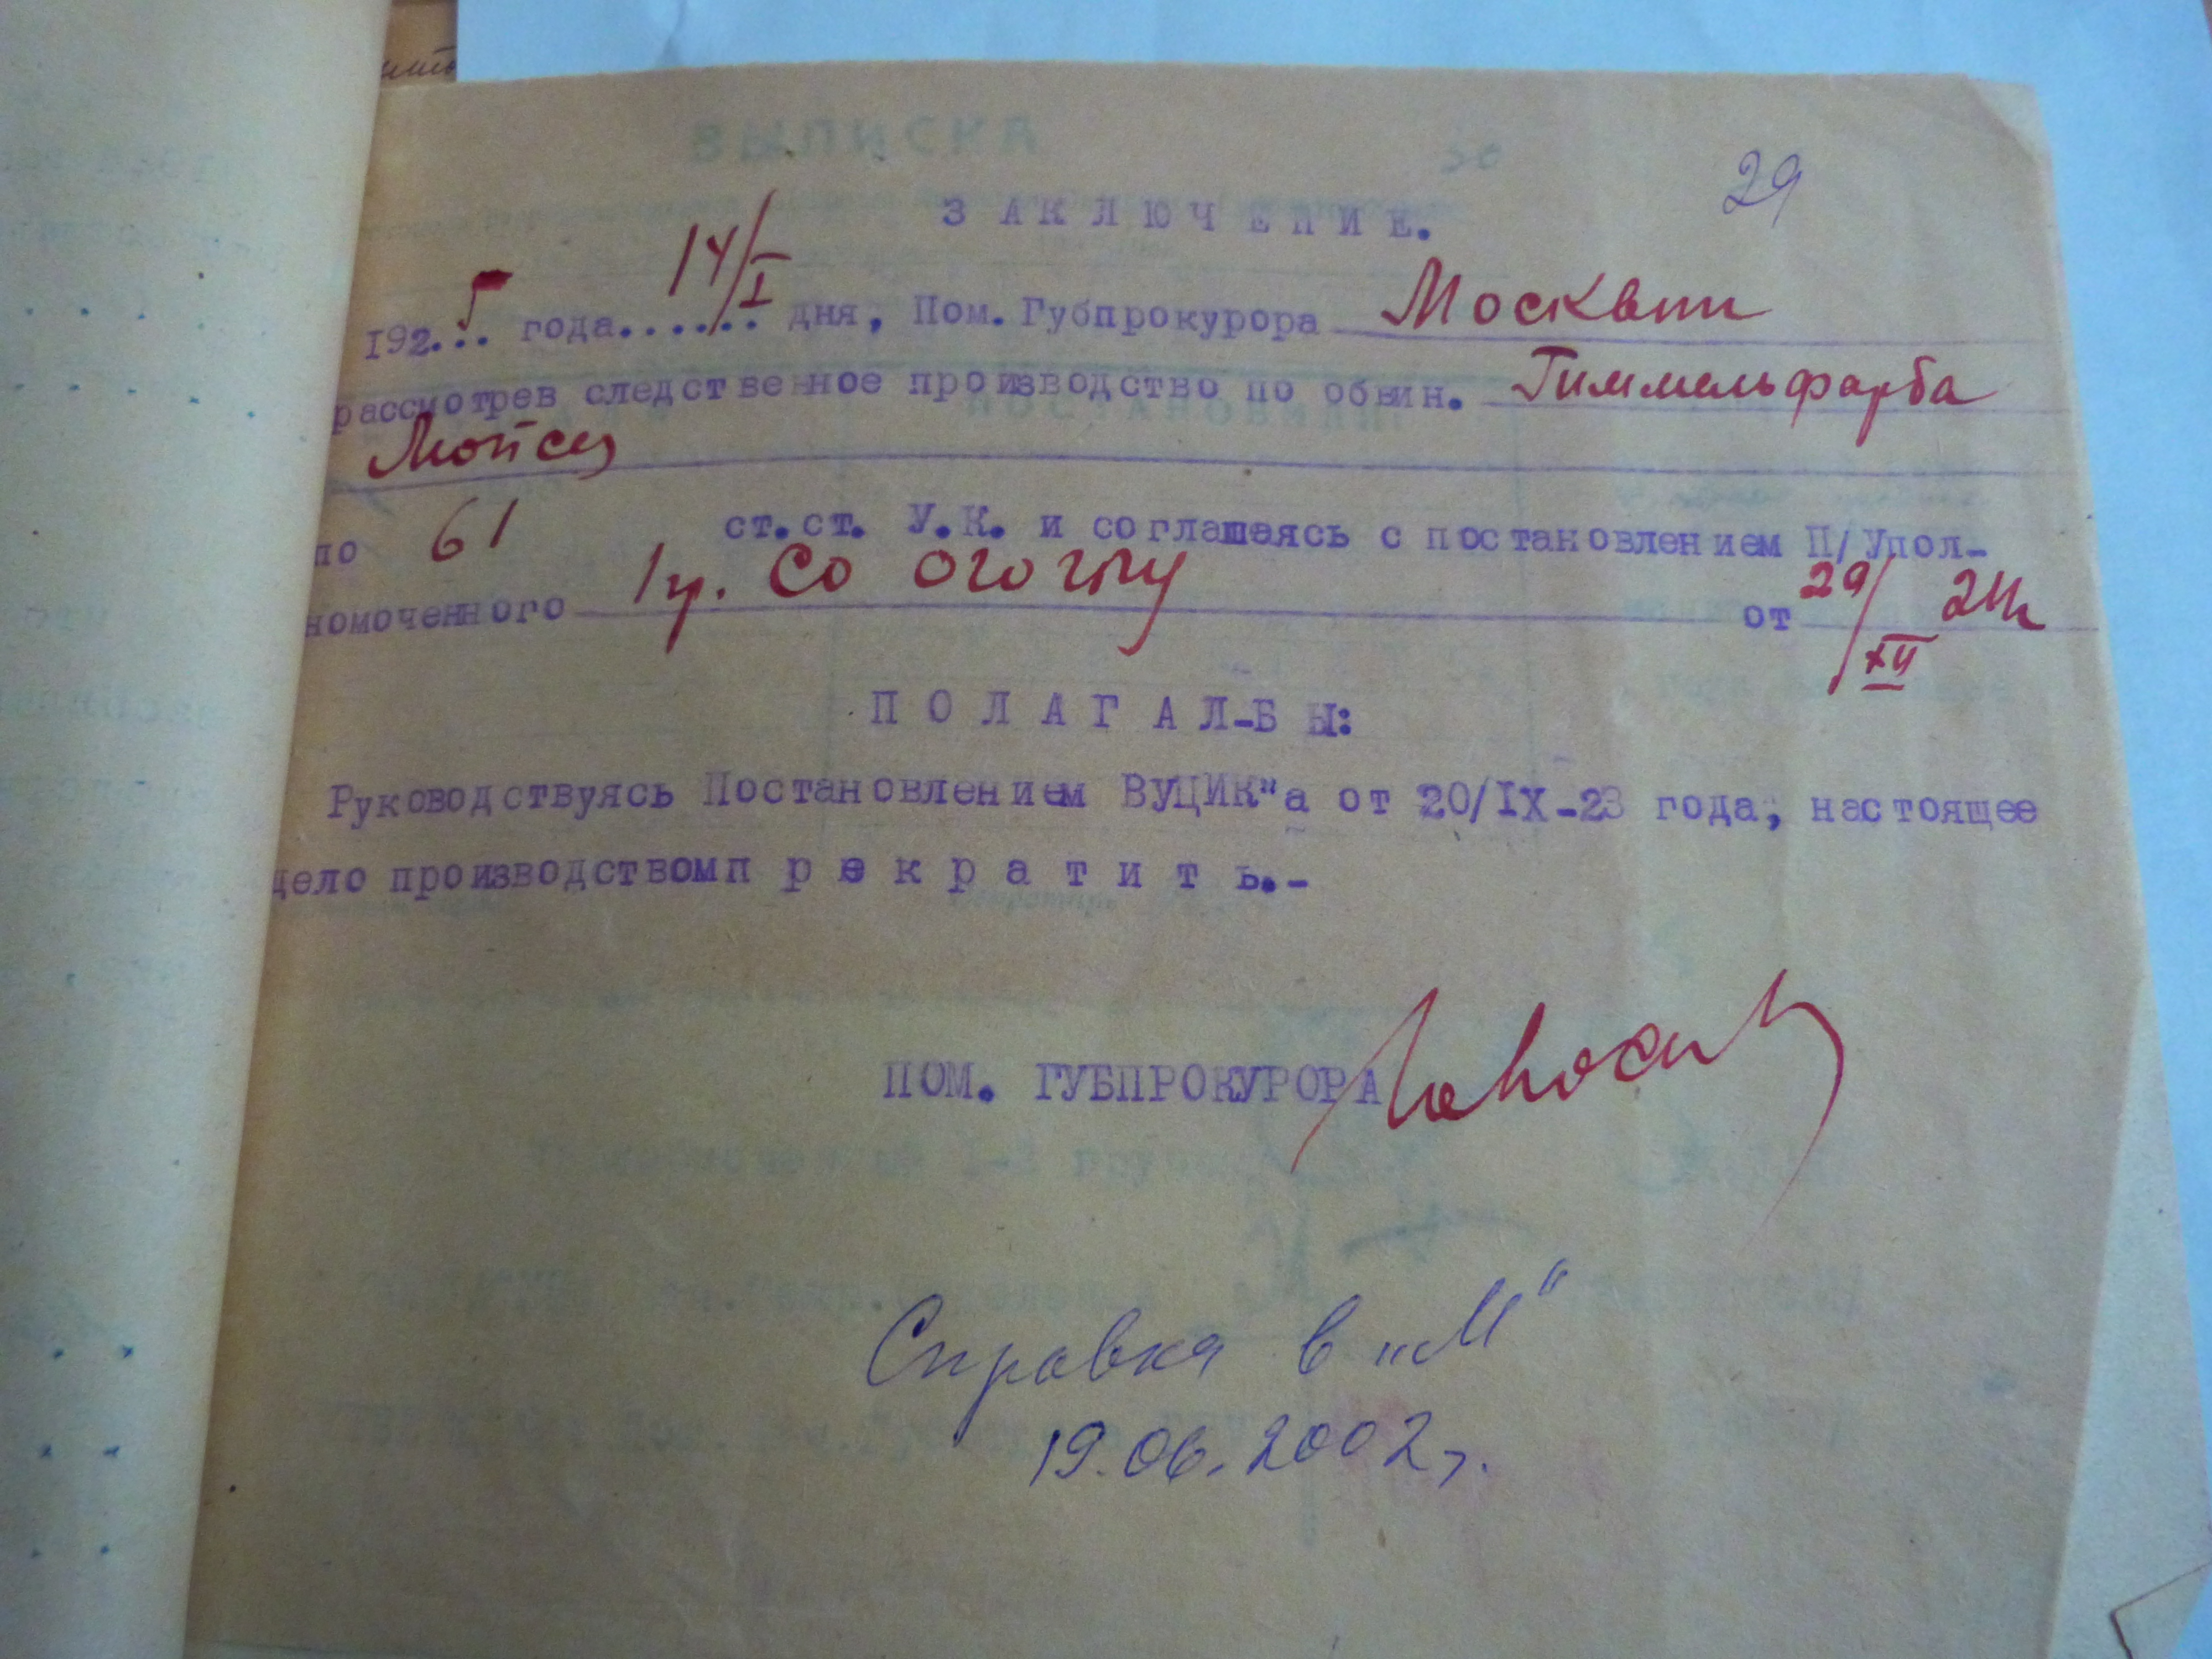 29
ЗАКЛЮЧЕНИЕ.
192 5 года 14/I дня, Пом. Губпрокурора Москвин
рассмотрев следственное производство по обвин. Гиммельфарба
Мойсея
по 61 ст.ст. У.К. и соглашаясь с постановлением П/Упол-
номоченного 1 гр. СО ОГОГПУ от 29/XII 24г
ПОЛАГАЛ-БЫ:
Руководствуясь Постановлением ВУЦИК"а от 20/IX-23 года, настоящее
дело производством прекратить.-
ПОМ. ГУБПРОКУРОРА
Справка в „М"
19.06.2002г.